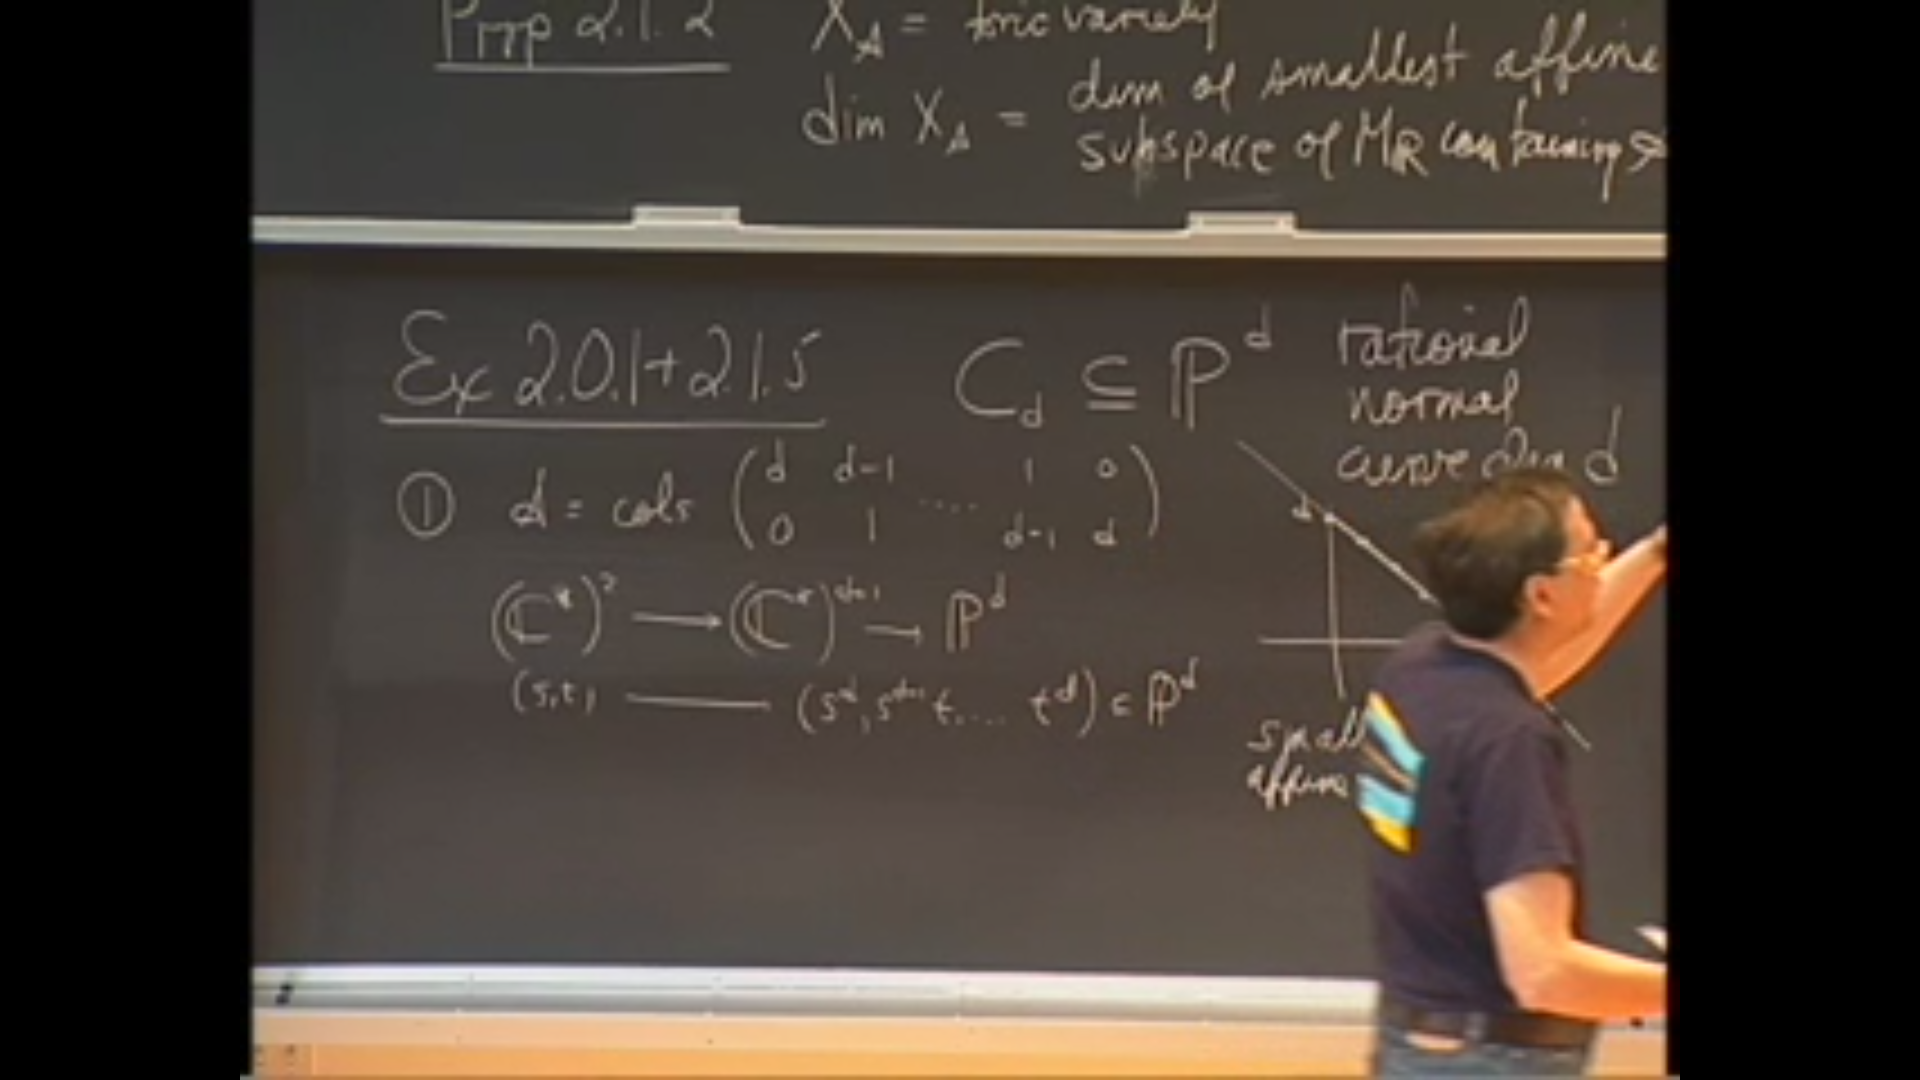 Prop 2.1.2 X_A = toric variety
dim X_A = dim of smallest affine
subspace of M_R containing A
Ex 2.0.1+2.1.5 C_d ⊆ ℙ^d rational
normal
curve deg d
① A = cols ( d d-1 .... 1 0 )
( 0 1 d-1 d )
(ℂ*)² → (ℂ*)^{d+1} → ℙ^d
(s,t) — (s^d, s^{d-1}t, ... t^d) ∈ ℙ^d
d
small
affine